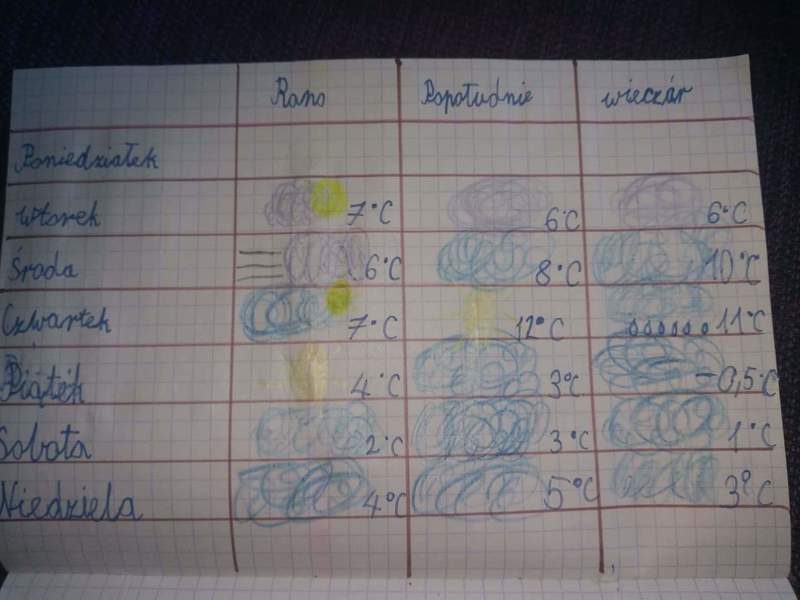 Rano Popołudnie wieczór
Poniedziałek
wtorek 7°C 6°C 6°C
środa 6°C 8°C 10°C
Czwartek 7°C 12°C 11°C
Piątek 4°C 3°C -0,5°C
Sobota 2°C 3°C 1°C
Niedziela 4°C 5°C 3°C